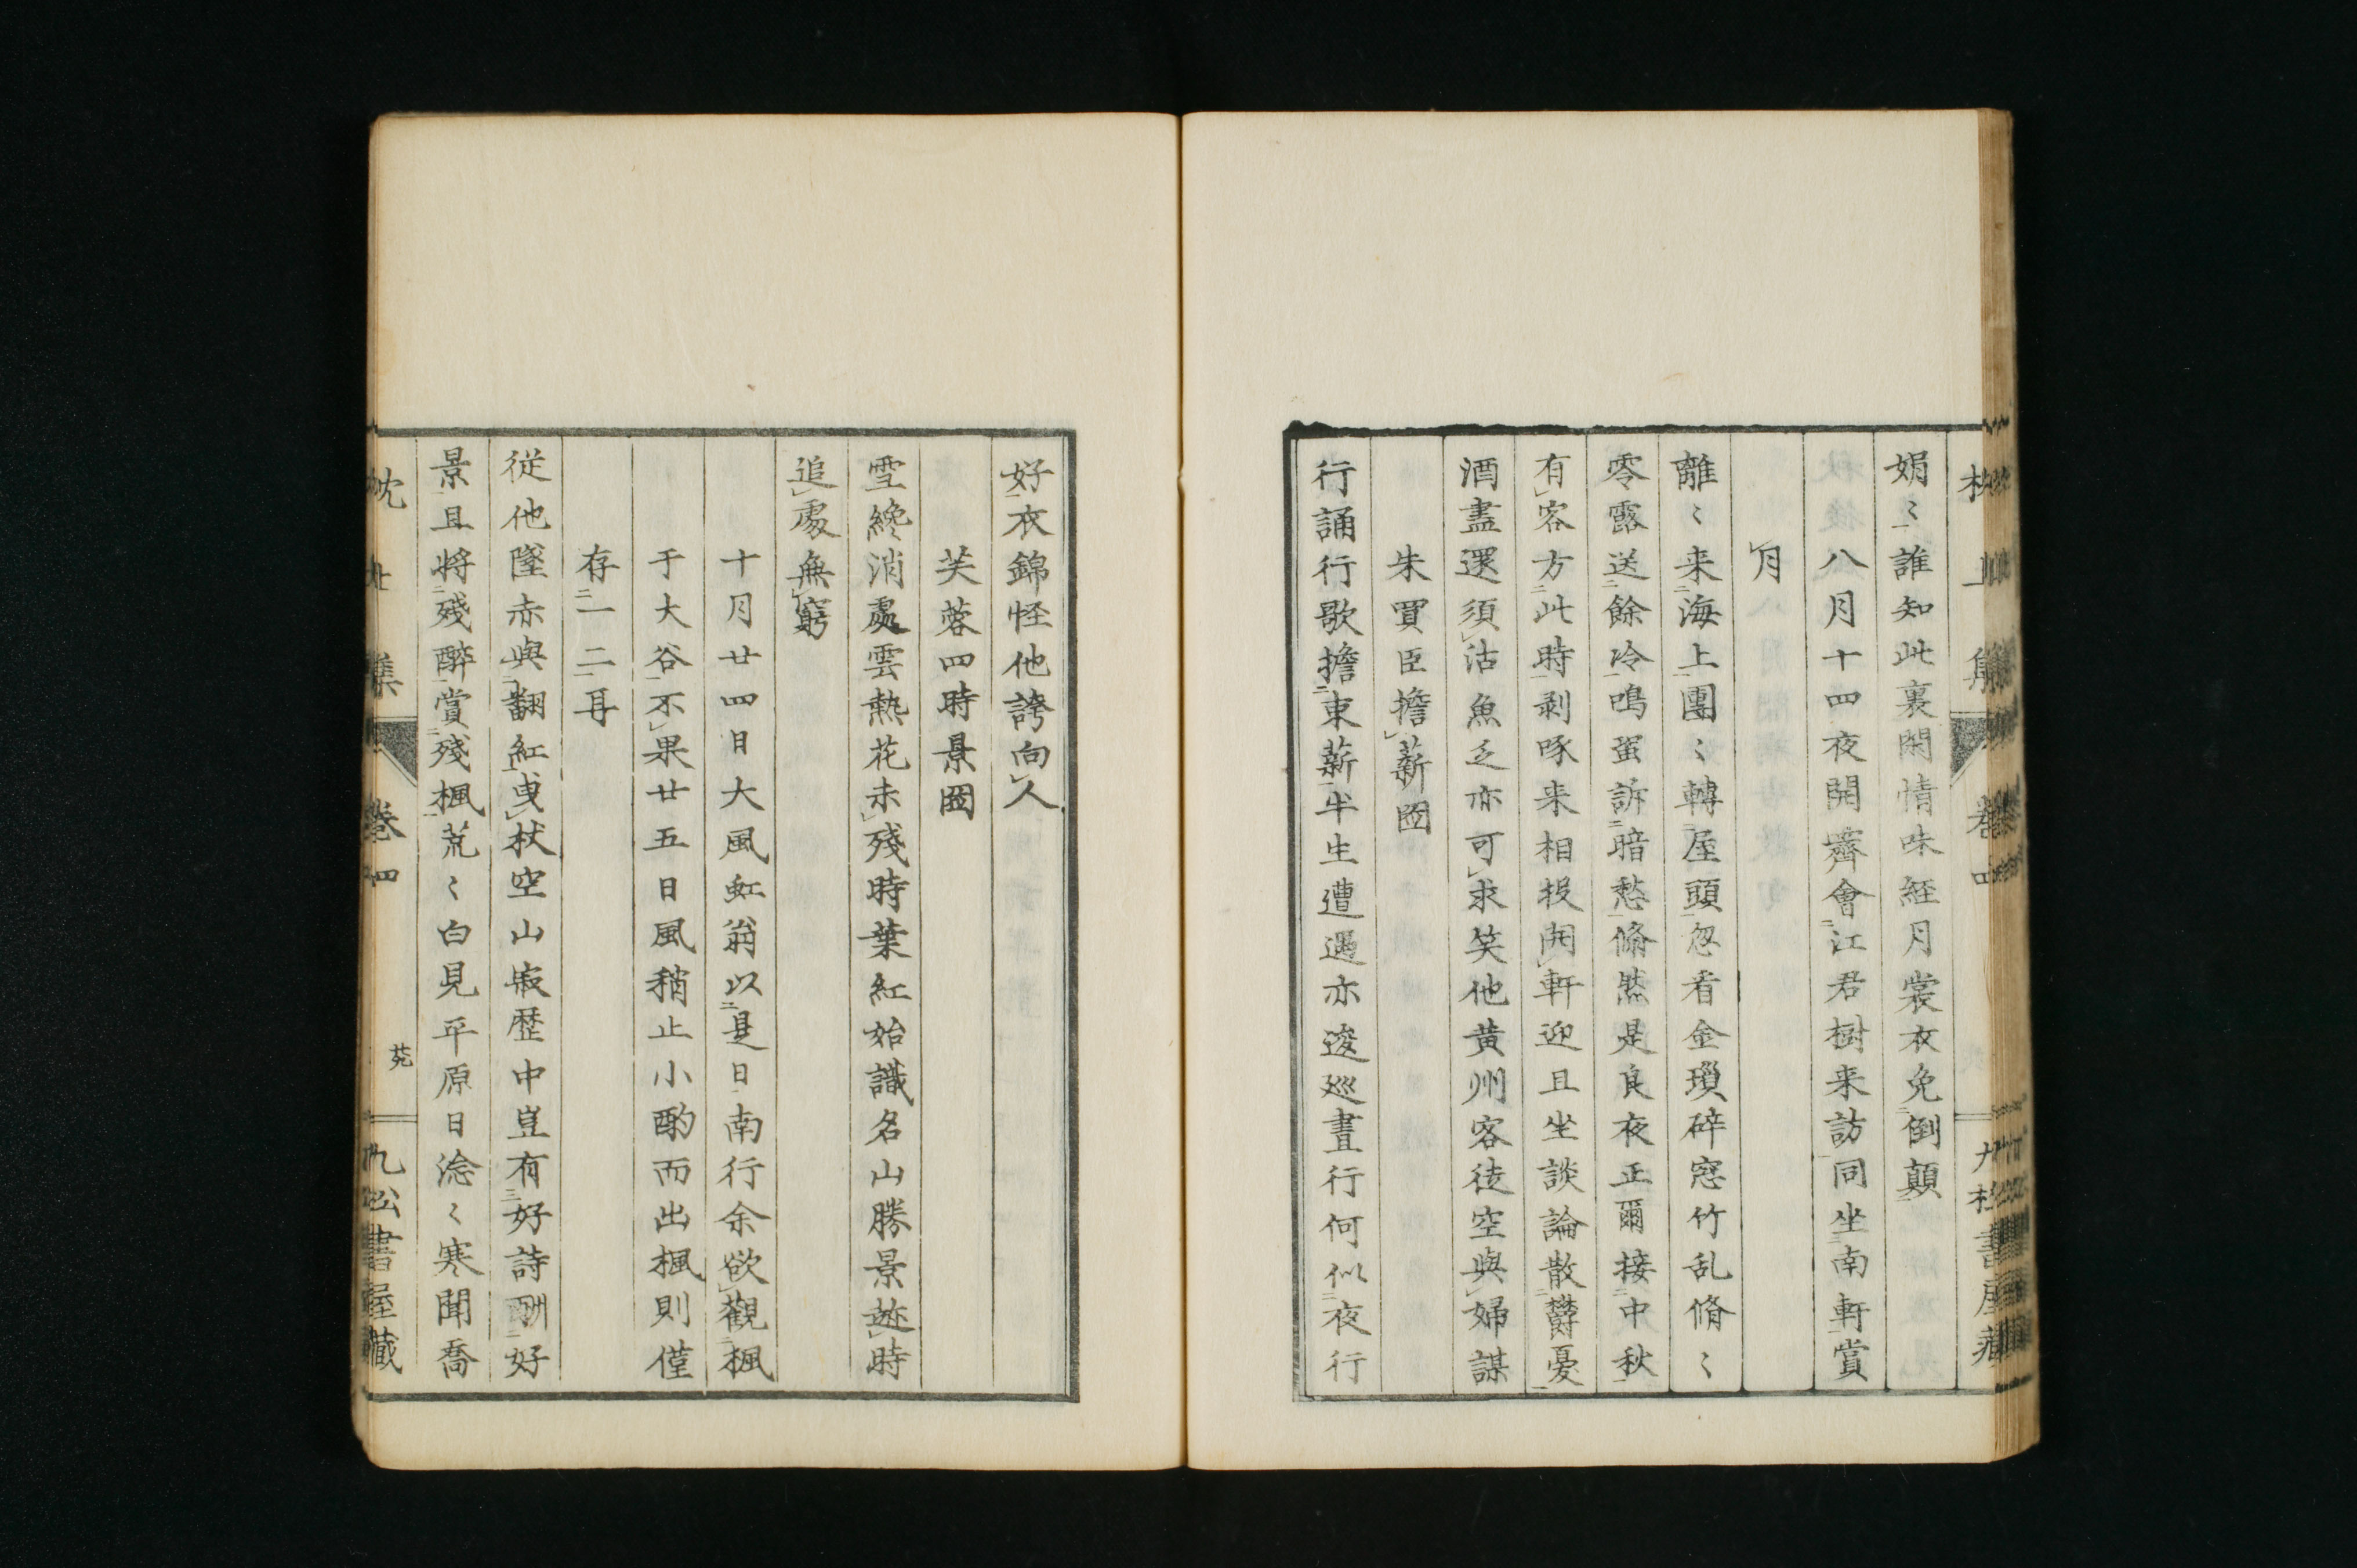 娟〻誰知此裏閑情味経月裳衣免倒顛
八月十四夜開齊會江君樹来訪同坐南軒賞
月
離〻来海上團〻轉屋頭忽看金瑣碎窓竹乱脩〻
零露送餘冷鳴蛩訴暗愁脩然是良夜正爾接中秋
有客方此時剥啄来相投開軒迎且坐談論散欝憂
酒盡還須沽魚乏亦可求笑他黄州客徒空與婦謀
朱買臣擔薪圖
行誦行歌擔束薪半生遭遇亦逡巡晝行何似夜行
好衣錦怪他誇向人
芙蓉四時景圖
雪纔消處雲熱花未殘時葉紅始識名山勝景遊時
追處無窮
十月廿四日大風虹翁以是日南行余欲觀楓
于大谷不果廿五日風稍止小酌而出楓則僅
存一二耳
従他墜赤與翻紅曳杖空山寂歴中豈有好詩酬好
景且将殘酔賞殘楓荒〻白見平原日淰〻寒聞喬
枕上集
卷四
苑
九松書屋藏